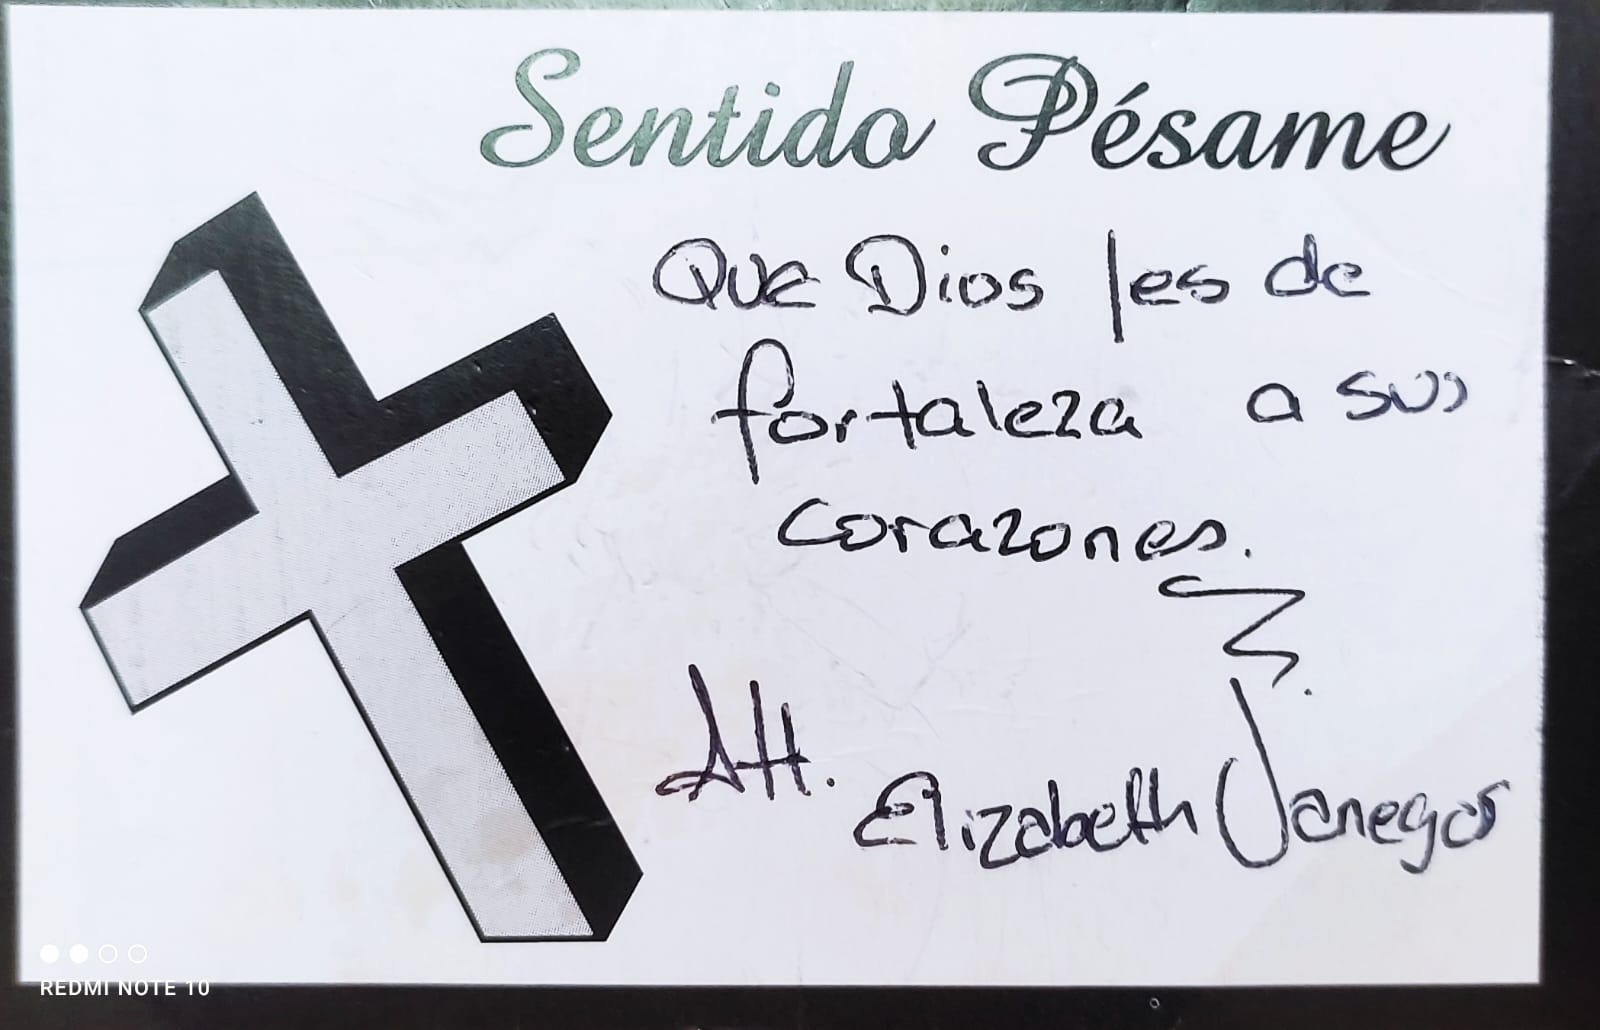 Sentido Pésame
Que Dios les de
fortaleza a sus
corazones.
Att.
Elizabeth Vanegas
REDMI NOTE 10